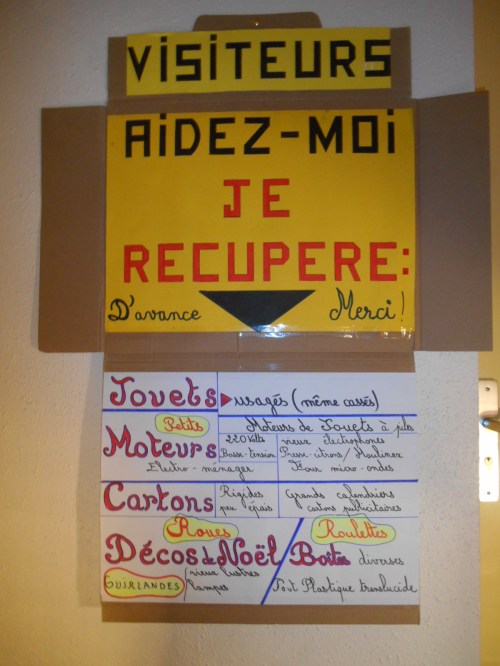 VISITEURS
AIDEZ-MOI
JE
RECUPERE:
D'avance Merci!
Jouets usagés (même cassés)
Petits Moteurs de Jouets à piles
Moteurs 220 Volts vieux électrophones
Basse-tension Presse-citrons/Moulinex
Electro-ménager Four micro-ondes
Cartons Rigides Grands calendriers
peu épais cartons publicitaires
Roues Roulettes
Décos de Noël Boîtes diverses
GUIRLANDES vieux lustres
lampes Tout Plastique translucide